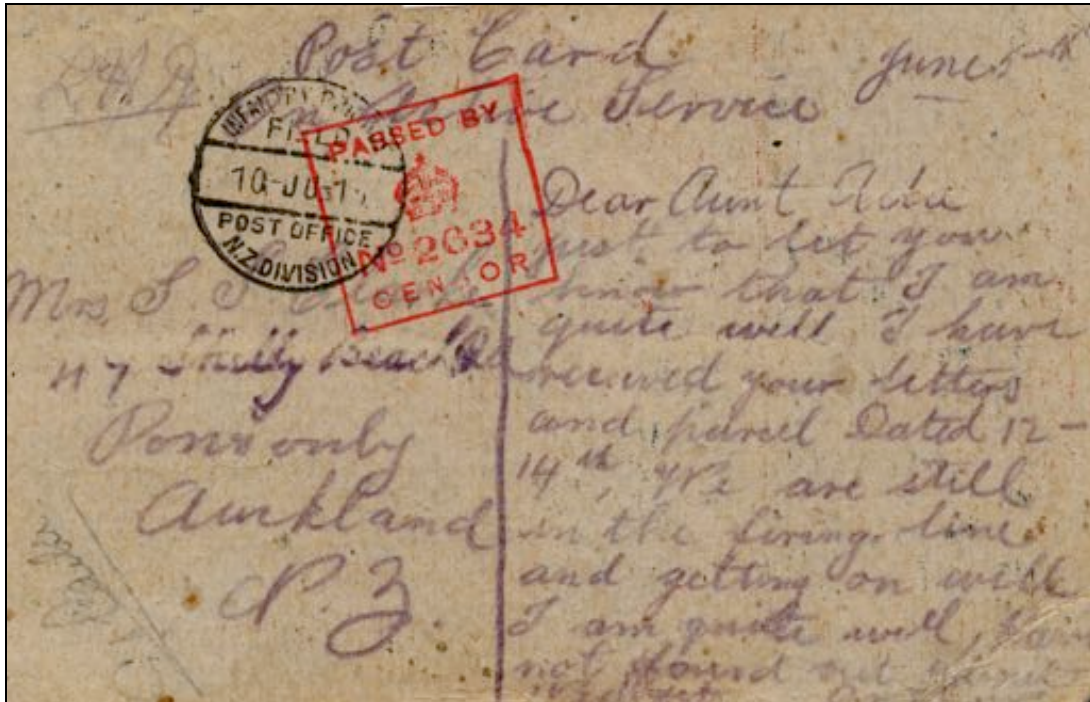 Post Card
June 5th
on Active Service
INFANTRY
FIELD
10 JU 1
POST OFFICE
N.Z. DIVISION
PASSED BY
No 2634
CENSOR
Mrs S
47 Shelly Beach Rd
Ponsonby
Auckland
N.Z.
Dear Aunt Ada
just to let you
know that I am
quite well I have
received your letters
and parcel Dated 12-
14th, We are still
in the firing line
and getting on well
I am quite well, have
not found